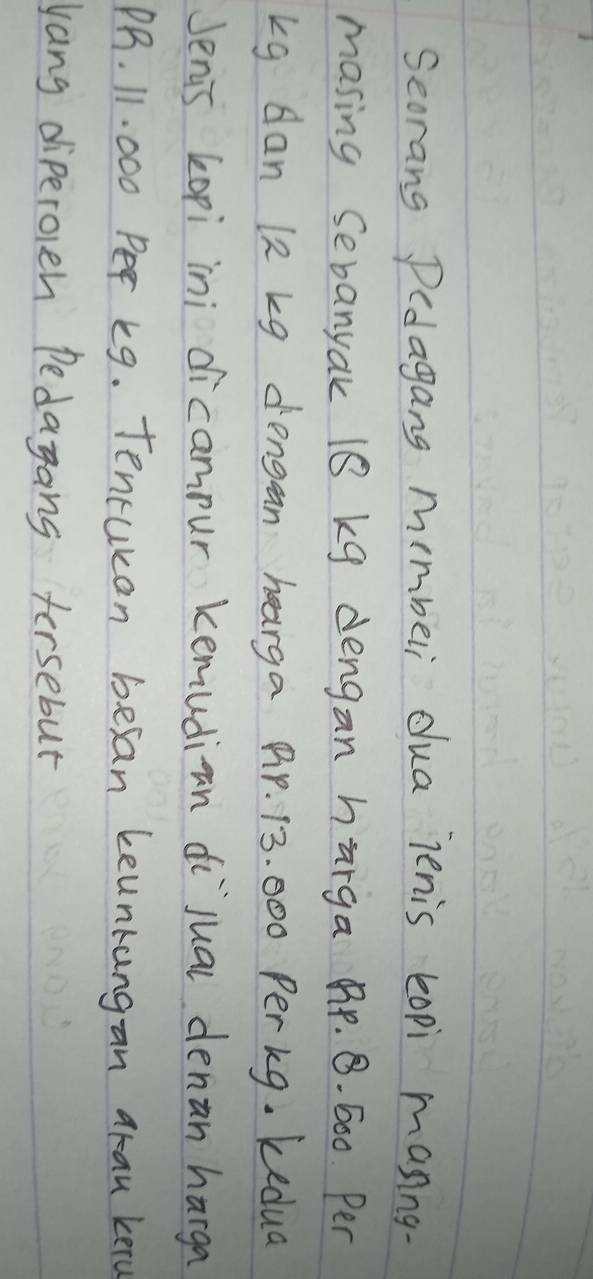 Seorang Pedagang membeli dua jenis kopi masing-
masing sebanyak 18 kg dengan harga Rp. 8.500 Per
kg dan 12 kg dengan harga Rp. 13.000 Per kg. kedua
Jenis kopi ini dicampur kemudian di jual denan harga
PR. 11.000 Per kg. Tentukan besan keuntungan atau keru
yang diperoleh Pedagang tersebut